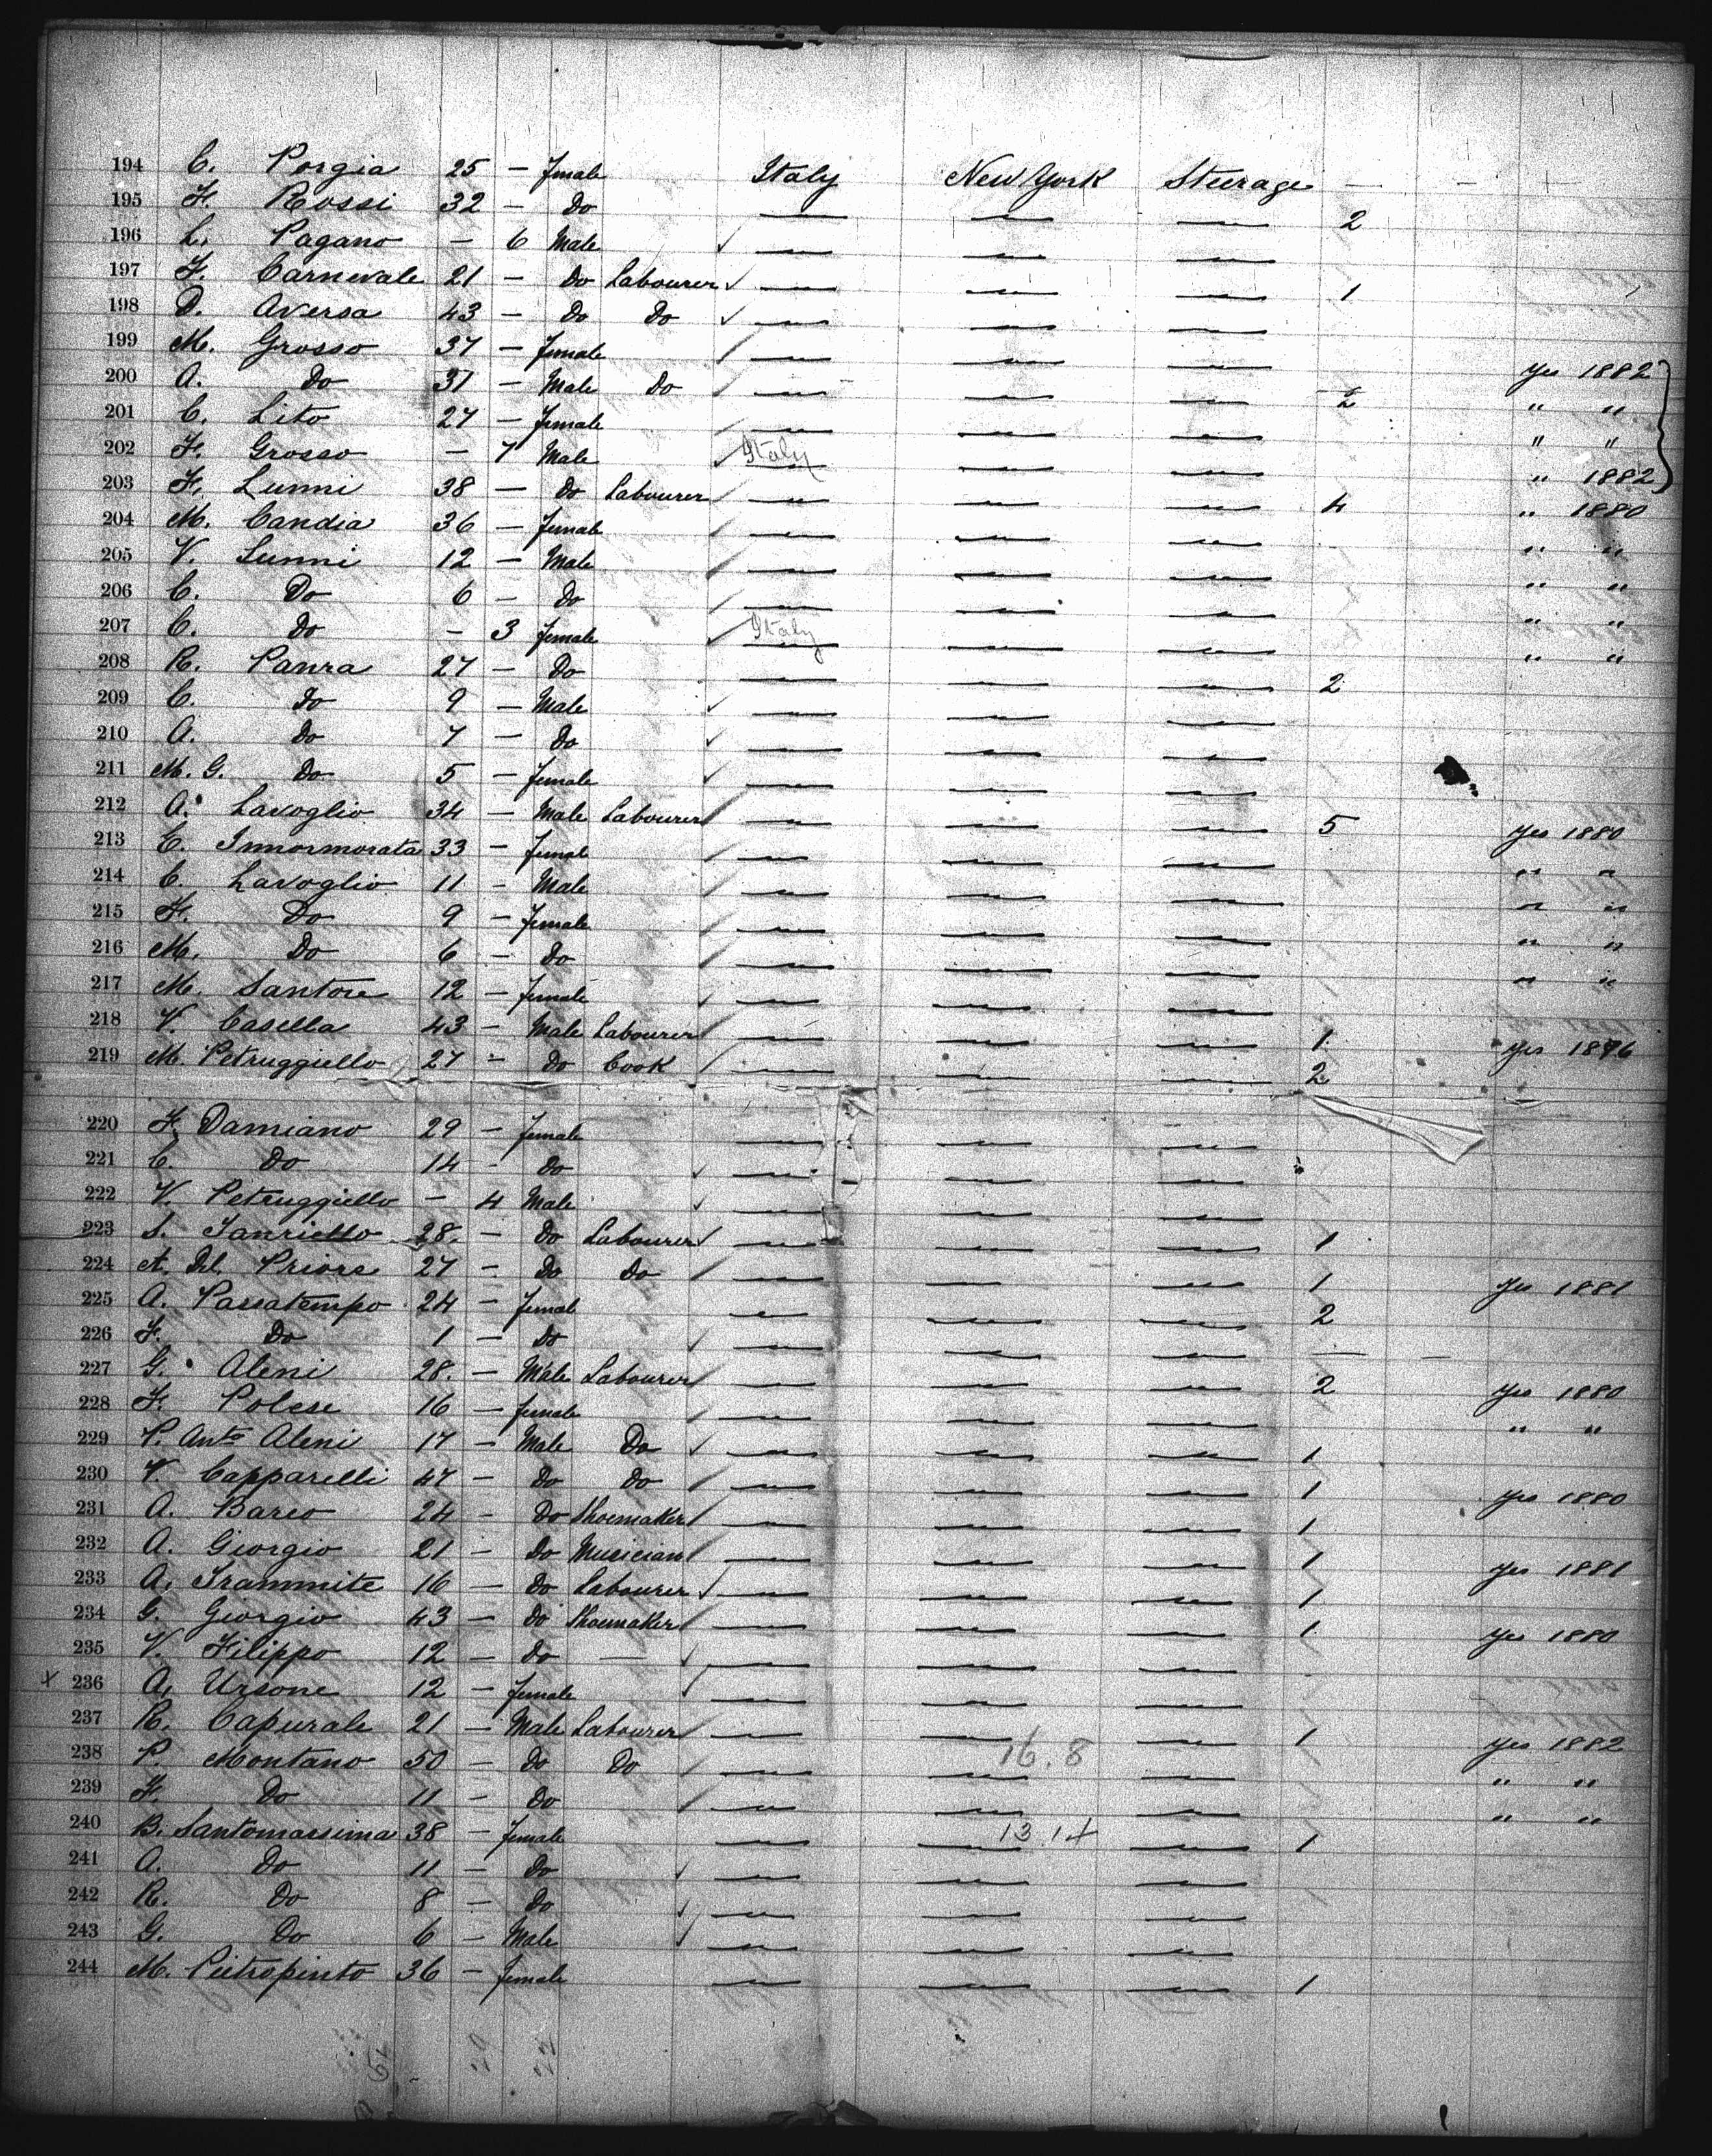 194 C. Porgia 25 – female Italy New York Steerage – – –
195 F. Rossi 32 – Do — — — 2
196 L. Pagano – 6 Male ✓ — — —
197 F. Carnevale 21 – Do Labourer ✓ — — — 1
198 D. Aversa 43 – Do Do ✓ — — —
199 M. Grosso 37 – female — — — Yes 1882
200 A. Do 31 – Male Do — — — 2 " "
201 C. Lito 27 – female — — — " "
202 F. Grosso – 7 Male ✓ Italy — — " 1882
203 F. Lunni 38 – Do Labourer — — — 4 " 1880
204 M. Candia 36 – female — — — " "
205 V. Lunni 12 – Male — — — " "
206 C. Do 6 – Do — — — " "
207 C. Do – 3 female ✓ Italy — — " "
208 R. Panra 27 – Do — — — 2
209 C. Do 9 – Male ✓ — — —
210 A. Do 7 – Do ✓ — — —
211 M. G. Do 5 – female ✓ — — —
212 A. Lavoglio 34 – Male Labourer — — — 5 Yes 1880
213 E. Innormorata 33 – female — — — " "
214 C. Lavoglio 11 – Male — — — " "
215 F. Do 9 – female — — — " "
216 M. Do 6 – Do — — — " "
217 M. Santore 12 – female ✓ — — —
218 V. Casella 43 – Male Labourer — — — 1 Yes 1876
219 M. Petruggiello 27 – Do Cook — — — 2
220 F. Damiano 29 – female — — —
221 C. Do 14 – Do ✓ — — —
222 V. Petruggiello – 4 Male ✓ — — —
223 S. Ianriello 28. – Do Labourer ✓ — — — 1
224 A. Del Priore 27 – Do Do — — — 1 Yes 1881
225 A. Passatempo 24 – female — — — 2
226 F. Do 1 – Do ✓ — — — — —
227 G. Aleni 28. – Male Labourer — — — 2 Yes 1880
228 F. Polese 16 – female — — — " "
229 P. Anto Aleni 17 – Male Do ✓ — — — 1
230 V. Capparelli 47 – Do Do — — — 1 Yes 1880
231 A. Bareo 24 – Do Shoemaker — — — 1
232 A. Giorgio 21 – Do Musician — — — 1 Yes 1881
233 A. Trammite 16 – Do Labourer ✓ — — — 1
234 G. Giorgio 43 – Do Shoemaker — — — 1 Yes 1880
235 V. Filippo 12 – Do — ✓ — — —
x 236 A. Ursone 12 – female ✓ — — —
237 R. Capurale 21 – Male Labourer — — — 1 Yes 1882
238 P. Montano 50 – Do Do — 16.8 — " "
239 F. Do 11 – Do — — — " "
240 B. Santomassima 38 – female — 13 14 — 1
241 A. Do 11 – Do ✓ — — —
242 R. Do 8 – Do ✓ — — —
243 G. Do 6 – Male ✓ — — —
244 M. Pietropinto 36 – female — — — 1